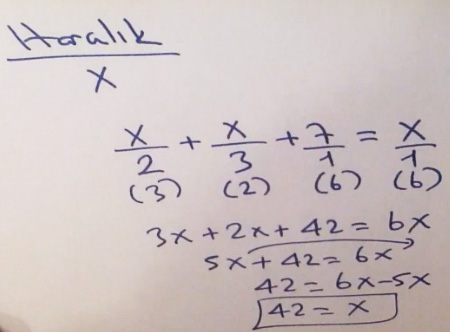 Haralık
x
x/2 + x/3 + 7/1 = x/1
(3) (2) (6) (6)
3x + 2x + 42 = 6x
5x + 42 = 6x
42 = 6x - 5x
42 = x